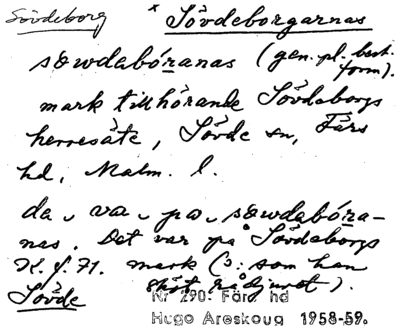 Sövdeborg
× Sövdeborgarnas
sœwdabóranas (gen. pl. best.
form).
mark tillhörande Sövdeborgs
herresäte, Sövde sn, Färs
hd, Malm. l.
da va pa sœwdabóra-
nas. Det var på Sövdeborgs
mark (ɔ: som han
sköt rådjuret).
Sövde
Nr 290: Färs hd
Hugo Areskoug 1958-59.